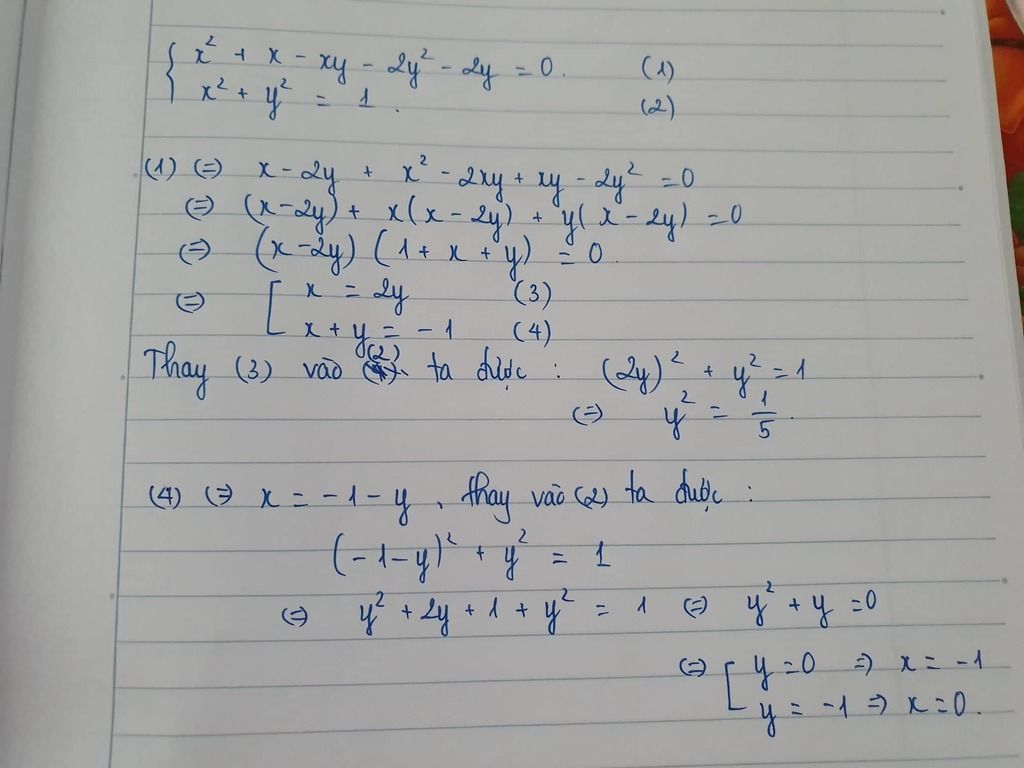 { x² + x - xy - 2y² - 2y = 0. (1)
x² + y² = 1. (2)
(1) (=) x - 2y + x² - 2xy + xy - 2y² = 0
(=) (x-2y) + x(x - 2y) + y(x - 2y) = 0
(=) (x-2y) (1 + x + y) = 0.
(=) [ x = 2y (3)
x + y = -1 (4)
Thay (3) vào (2) ta được : (2y)² + y² = 1
(=) y² = 1/5.
(4) (=) x = -1 - y, thay vào (2) ta được :
(-1-y)² + y² = 1
(=) y² + 2y + 1 + y² = 1 (=) y² + y = 0
(=) [ y = 0 => x = -1
y = -1 => x = 0.